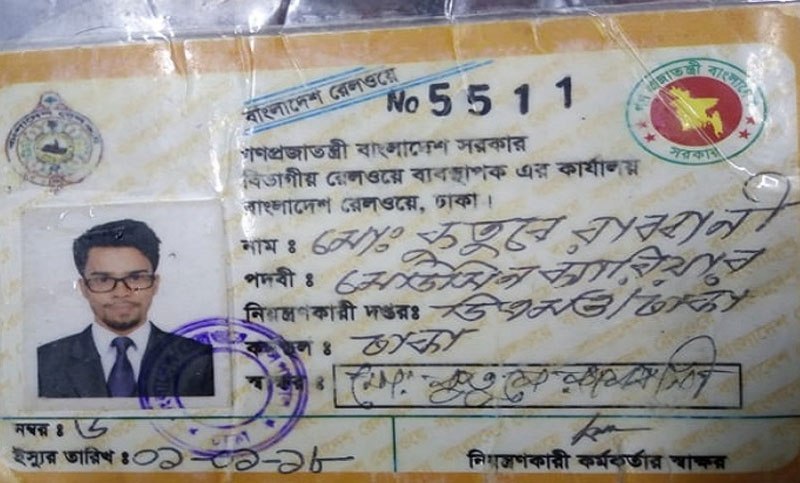 বাংলাদেশ রেলওয়ে
No 5511
গণপ্রজাতন্ত্রী বাংলাদেশ
সরকার
গণপ্রজাতন্ত্রী বাংলাদেশ সরকার
বিভাগীয় রেলওয়ে ব্যবস্থাপক এর কার্যালয়
বাংলাদেশ রেলওয়ে, ঢাকা।
নাম ঃ মোঃ কুতুবে রাব্বানী
পদবী ঃ মেডিসিন ক্যারিয়ার
নিয়ন্ত্রণকারী দপ্তরঃ ডিএমও/ঢাকা
কর্মস্থল ঃ ঢাকা
স্বাক্ষর ঃ মোঃ কুতুবে
নম্বর ঃ ৬
ইস্যুর তারিখ ঃ ০১-০১-১৮
নিয়ন্ত্রণকারী কর্মকর্তার স্বাক্ষর